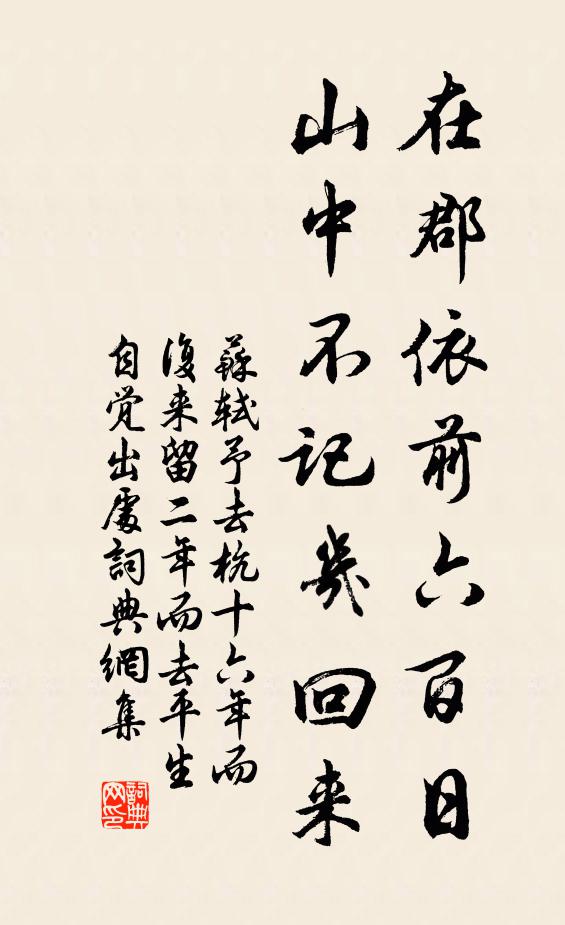 在郡依前六百日
山中不记几回来
蘇轼予去杭十六年而
復来留二年而去平生
自觉出處詞典網集
詞典
网印